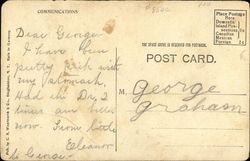 COMMUNICATIONS
Dear George
I have been
pretty sick with
my stomach.
Had the Dr. 2
times am better
now. From little
Eleanor
to George.
THE SPACE ABOVE IS RESERVED FOR POSTMARK
POST CARD.
Place Postage
Here
Domestic
Foreign 2c
M. George
Graham